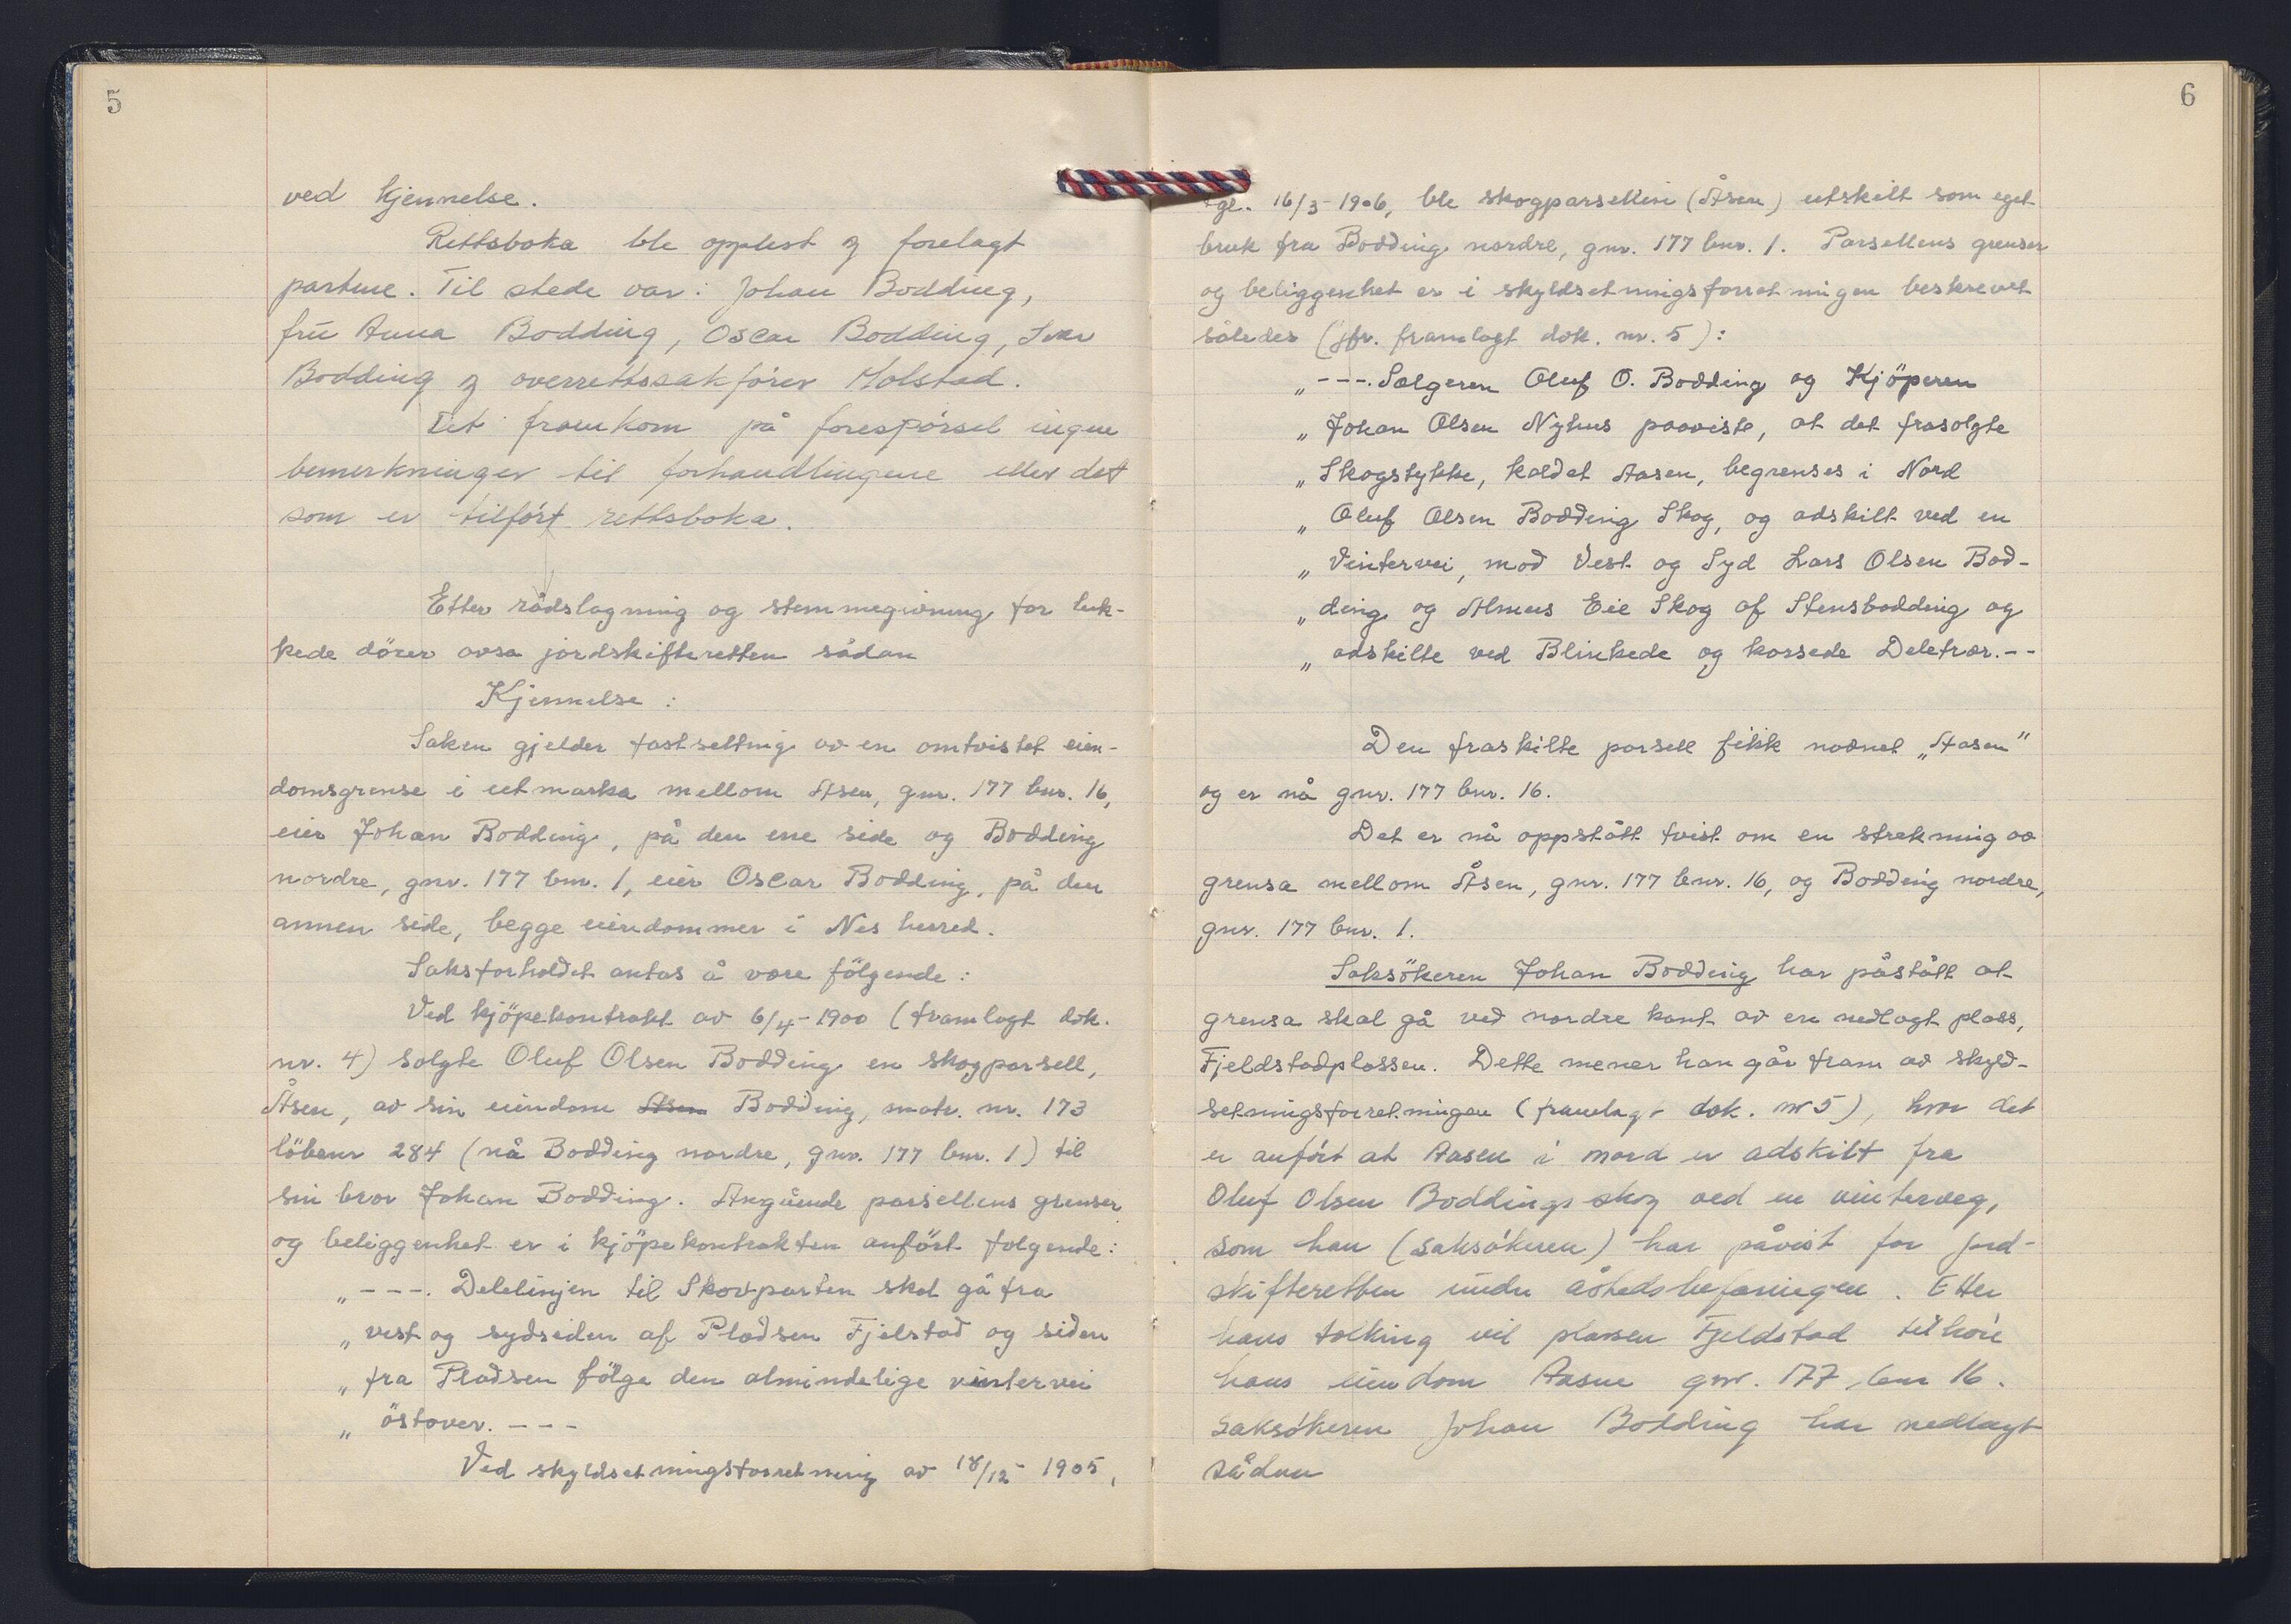 5
ved kjennelse.
Rettsboka ble opplest og forelagt
partene. Til stede var: Johan Bodding,
fru Anna Bodding, Oscar Bodding, Ivar
Bodding og overrettssakförer Holstad.
Det framkom på forespörsel ingen
bemerkninger til forhandlingene eller det
som er tilfört rettsboka.
Etter rådslagning og stemmegivning for luk-
kede dörer avsa jordskifteretten sådan
Kjennelse:
Saken gjelder fastsetting av en omtvistet eien-
domsgrense i utmarka mellom Åsen, gnr. 177 bnr. 16,
eier Johan Bodding, på den ene side og Bodding
nordre, gnr. 177 bnr. 1, eier Oscar Bodding, på den
annen side, begge eiendommer i Nes herred.
Saksforholdet antas å være fölgende:
Ved kjöpekontrakt av 6/4-1900 (framlagt dok.
nr. 4) solgte Oluf Olsen Bodding en skogparsell,
Åsen, av sin eiendom Åsen Bodding, matr. nr. 173
löbenr 284 (nå Bodding nordre, gnr. 177 bnr. 1) til
sin bror Johan Bodding. Angående parsellens grenser
og beliggenhet er i kjöpekontrakten anfört folgende:
„---. Delelinjen til Skovparten skal gå fra
„ vest og sydsiden af Pladsen Fjelstad og siden
„ fra Pladsen fölge den almindelige vintervei
„ östover. ---
Ved skyldsetningsforretning av 18/12-1905,
6
tgl. 16/3-1906, ble skogparsellen (Åsen) utskilt som eget
bruk fra Bodding nordre, gnr. 177 bnr. 1. Parsellens grenser
og beliggenhet er i skyldsetningsforretningen beskrevet
således (jfr. framlagt dok. nr. 5):
„---. Sælgeren Oluf O. Bodding og Kjöperen
„ Johan Olsen Nyhus paaviste, at det frasolgte
„ Skogstykke, kaldet Aasen, begrenses i Nord
„ Oluf Olsen Bodding Skog, og adskilt ved en
„ Vintervei, mod Vest og Syd Lars Olsen Bod-
„ ding og Almues Eie Skog af Stensbodding og
„ adskilte ved Blinkede og korsede Deletrær.--
Den fraskilte parsell fikk navnet „Aasen”
og er nå gnr. 177 bnr. 16.
Det er nå oppstått tvist om en strekning av
grensa mellom Åsen, gnr. 177 bnr. 16, og Bodding nordre,
gnr. 177 bnr. 1.
Saksökeren Johan Bodding har påstått at
grensa skal gå ved nordre kant av en nedlagt plass,
Fjeldstadplassen. Dette mener han går fram av skyld-
setningsforretningen (framlagt dok. nr 5), hvor det
er anfört at Aasen i nord er adskilt fra
Oluf Olsen Boddings skog ved en vinterveg,
som han (saksökeren) har påvist for jord-
skifteretten under åstedsbefaringen. Etter
hans tolking vil plassen Fjeldstad tilhöre
hans eiendom Aasen gnr. 177 bnr 16.
Saksökeren Johan Bodding har nedlagt
sådan